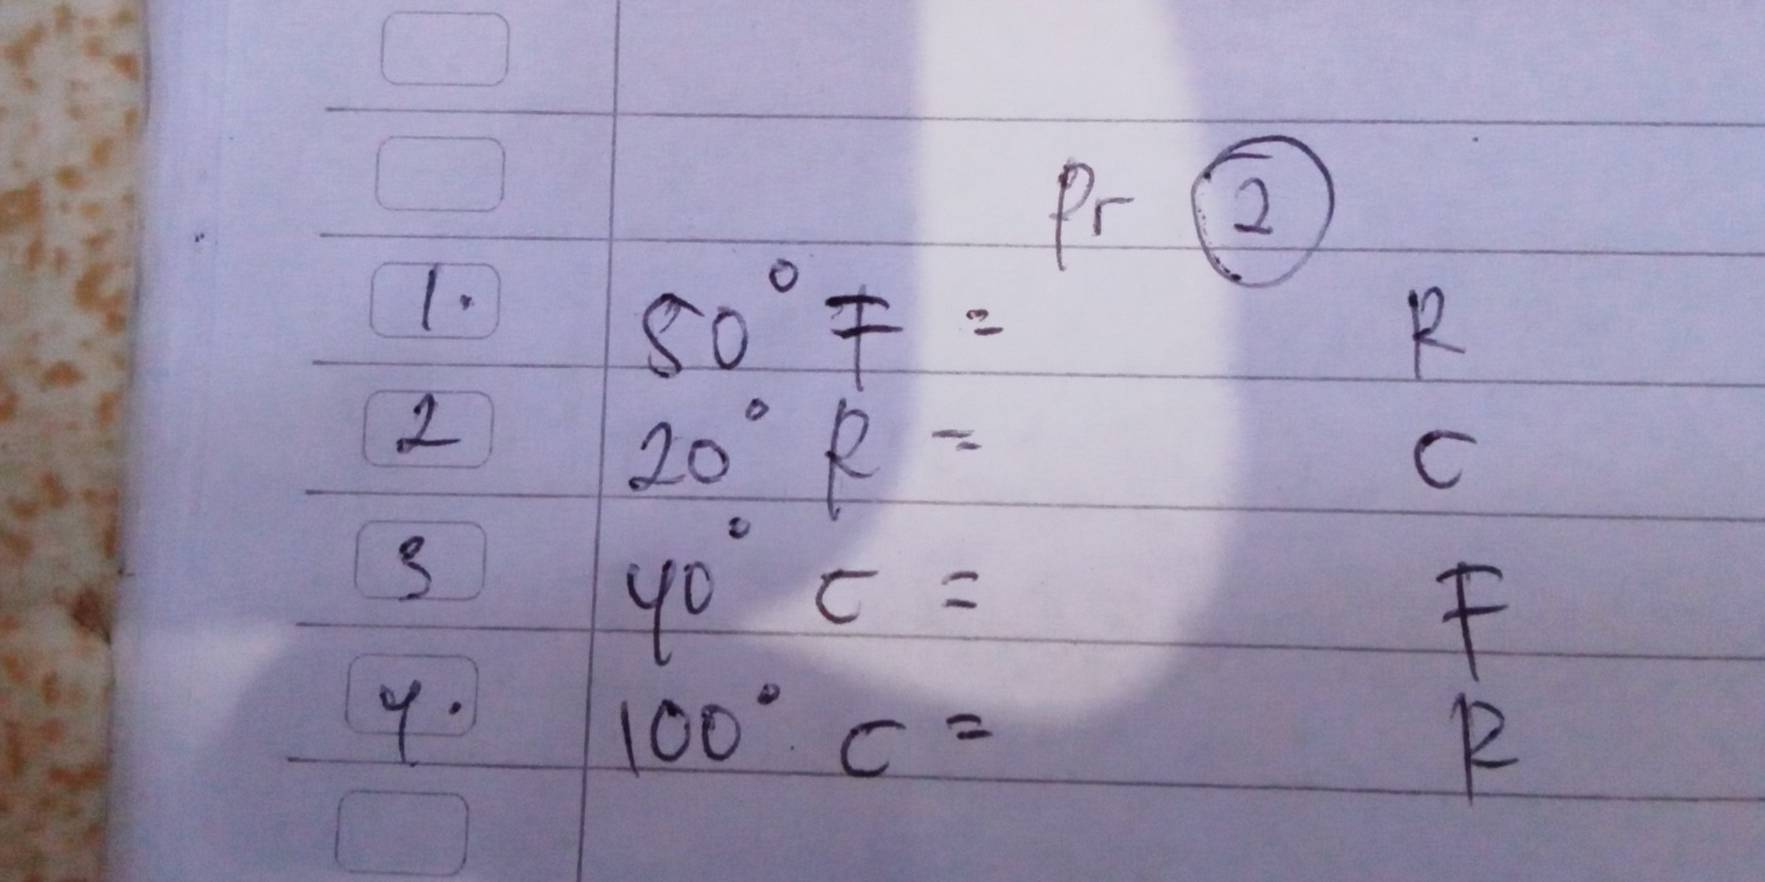 Pr 2
1. 50° F = R
2 20° R = C
3 40° C = F
4. 100° C = R